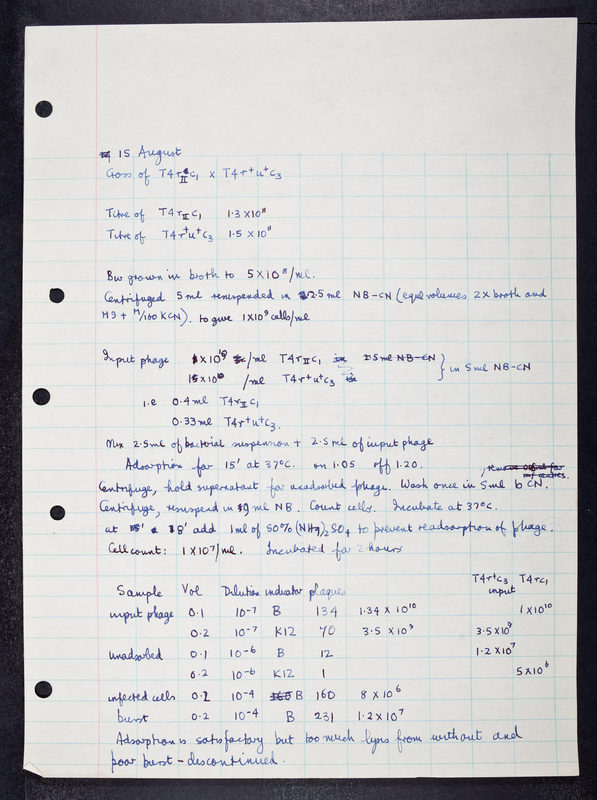 15 August
Cross of T4rIIc1 x T4r+u+c3
Titre of T4rIIc1 1.3 x 10^11
Titre of T4r+u+c3 1.5 x 10^11
Bw grown in broth to 5 x 10^8/ml.
Centrifuged 5 ml resuspended in 2.5 ml NB-CN (equal volumes 2 x broth and
M9 + M/100 KCN). to give 1x10^9 cells/ml
Input phage 1 x 10^10 /ml T4rIIc1 in 5 ml NB-CN } in 5 ml NB-CN
1 x 10^10 /ml T4r+u+c3 in
i.e 0.4 ml T4rIIc1
0.33 ml T4r+u+c3.
Mix 2.5 ml of bacterial suspension + 2.5 ml of input phage
Adsorption for 15' at 37°C. on 1.05 off 1.20.
Centrifuge, hold supernatant for unadsorbed phage. Wash once in 5 ml b CN.
Centrifuge, resuspend in 9 ml NB. Count cells. Incubate at 37°C.
at 8' add 1 ml of 50% (NH4)2SO4 to prevent readsorption of phage.
Cell count: 1 x 10^7/ml. Incubated for 2 hours
T4r+c3 T4rc1
Sample Vol Dilution indicator plaques input
input phage 0.1 10^-7 B 134 1.34 x 10^10 1 x 10^10
0.2 10^-7 K12 70 3.5 x 10^9 3.5 x 10^9
unadsorbed 0.1 10^-6 B 12 1.2 x 10^7
0.2 10^-6 K12 1 5 x 10^6
infected cells 0.2 10^-4 B 160 8 x 10^6
burst 0.2 10^-4 B 231 1.2 x 10^7
Adsorption is satisfactory but too much lysis from without and
poor burst - discontinued.